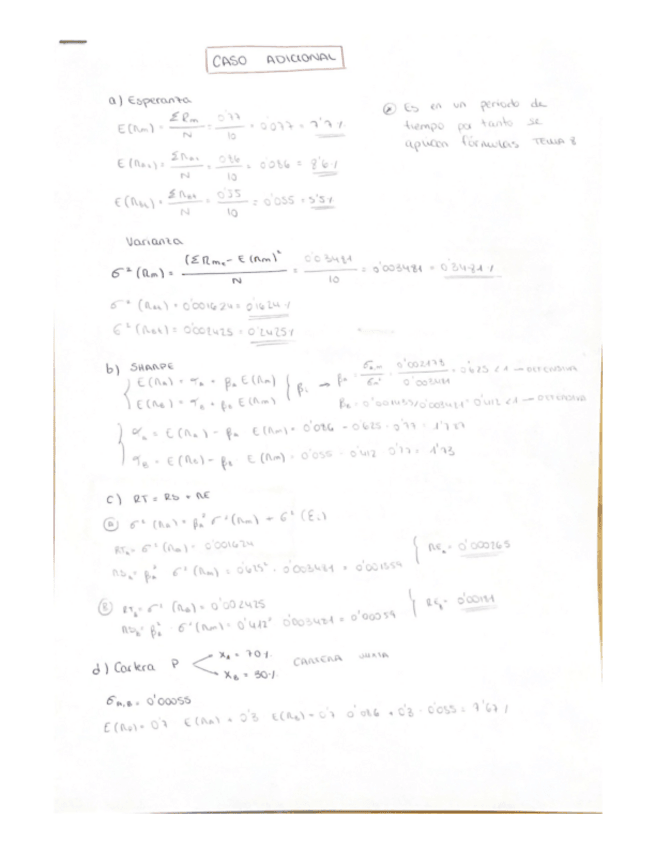 CASO ADICIONAL
a) Esperanza
E(Rm) = ΣRm / N = 0'77 / 10 = 0'077 = 7'7%
E(RA) = ΣRA / N = 0'86 / 10 = 0'086 = 8'6%
E(RB) = / N = 0'55 / 10 = 0'055 = 5'5%
* Es en un periodo de
tiempo por tanto se
aplican fórmulas TEMA 8
Varianza
σ²(Rm) = (ΣRm - E(Rm)² / N = 0'03481 / 10 = 0'003481 = 0'3481%
σ² = 0'001624 = 0'1624%
σ² = 0'002425 = 0'2425%
b) SHARPE
E(RA) = + βA E(Rm)
E(RB) = + βB E(Rm)
βi → βA = = 0'002178 / 0'003481 = 0'625 < 1 → DEFENSIVA
βB = 0'003481 = 0'412 < 1 → DEFENSIVA
= E(RA) - βA E(Rm) = 0'086 - 0'625 · 0'77 =
= E(RB) - βB E(Rm) = 0'055 - 0'412 · 0'77 =
c) RT = RS + RE
A σ²(RA) = βA² σ²(Rm) + σ²(Ei)
RTA = = 0'001624
RSA = βA² σ²(Rm) = 0'625² · 0'003481 = 0'001359
REA = 0'000265
B RTB = σ²(RB) = 0'002425
RSB = βB² · σ²(Rm) = 0'412² · 0'003481 = 0'00059
REB =
d) Cartera P
XA = 70%
XB = 30%
CARTERA MIXTA
σA,B = 0'00055
E(Rp) = 0'7 E(RA) + 0'3 E(RB) = 0'7 · 0'086 + 0'3 · 0'055 = 7'67%